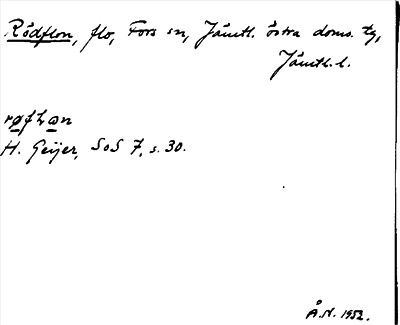 Rödflon, flo, Fors sn, Jämtl. östra doms. tg,
Jämtl. l.
H. Geijer, SoS 7, s. 30.
Å.N. 1952.